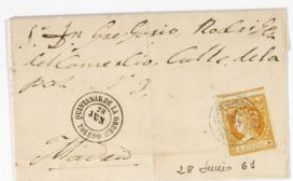 Sr Dn Gregorio Rodrig
del Comercio Calle de la
paz nº 9
QUINTANAR DE LA ORDEN
28
JUN
a
Madrid
28 Junio 61